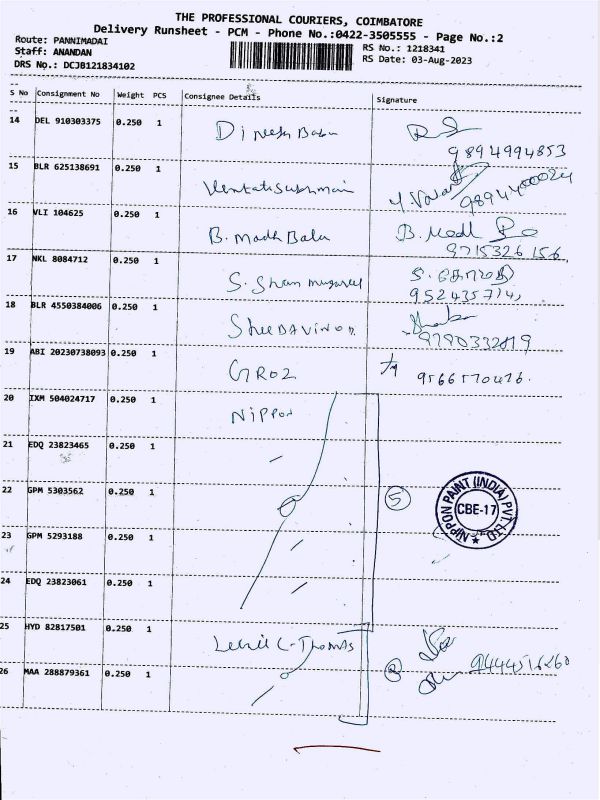 THE PROFESSIONAL COURIERS, COIMBATORE
Delivery Runsheet - PCM - Phone No.:0422-3505555 - Page No.:2
Route: PANNIMADAI
RS No.: 1218341
Staff: ANANDAN
RS Date: 03-Aug-2023
DRS No.: DCJB121834102
S No Consignment No Weight PCS Consignee Details Signature
14 DEL 910303375 0.250 1 Dinesh Babu
9894994853
15 BLR 625138691 0.250 1
16 VLI 104625 0.250 1 B. Madh Babu B. Madh
9715326156
17 NKL 8084712 0.250 1 S. Shanmugavel
18 BLR 4550384006 0.250 1
9790332819
19 ABI 20230738093 0.250 1 GROZ
20 IXM 504024717 0.250 1 NIPPON
21 EDQ 23823465 0.250 1
22 GPM 5303562 0.250 1 5
NIPPON PAINT (INDIA) PVT. LTD.
CBE-17
23 GPM 5293188 0.250 1
24 EDQ 23823061 0.250 1
25 HYD 82817501 0.250 1 C. Thomas
26 MAA 288879361 0.250 1 2 9444516260